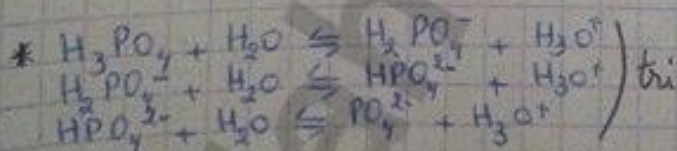 * H₃PO₄ + H₂O ⇆ H₂PO₄⁻ + H₃O⁺
H₂PO₄⁻ + H₂O ⇆ HPO₄²⁻ + H₃O⁺ ) tri
HPO₄²⁻ + H₂O ⇆ PO₄²⁻ + H₃O⁺